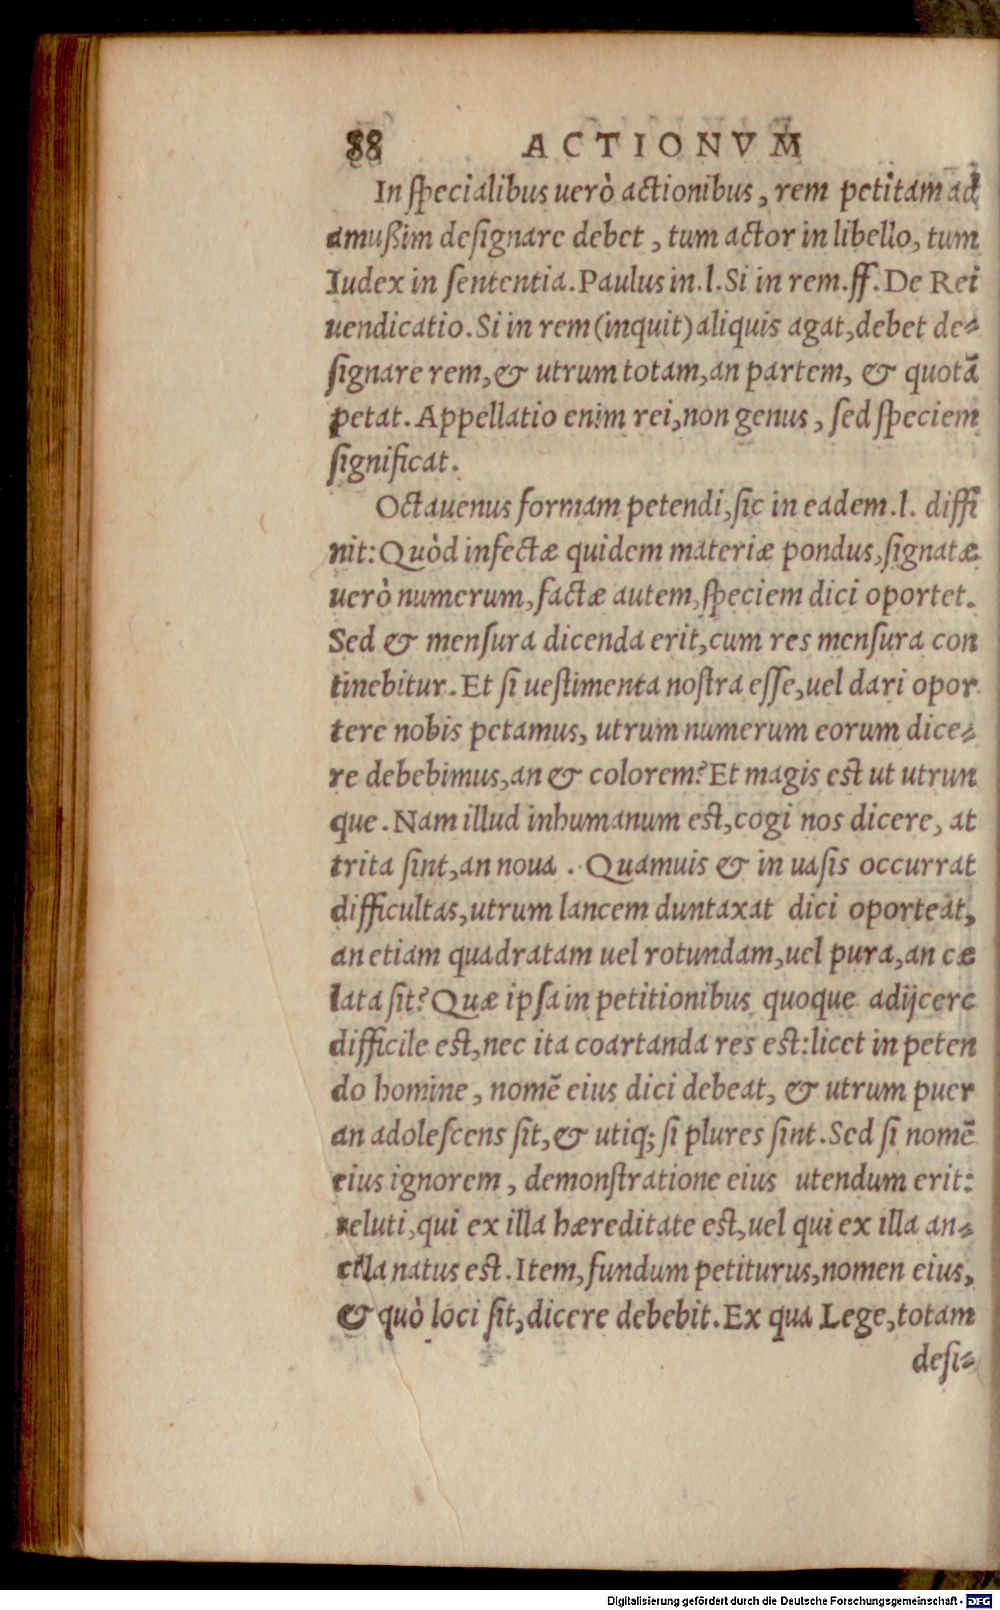 88 ACTIONVM
In specialibus uerò actionibus, rem petitam ad
amußim designare debet, tum actor in libello, tum
Iudex in sententia. Paulus in. l. Si in rem. ff. De Rei
uendicatio. Si in rem (inquit) aliquis agat, debet de⸗
signare rem, & utrum totam, an partem, & quotā
petat. Appellatio enim rei, non genus, sed speciem
significat.
Octauenus formam petendi, sic in eadem. l. diffi
nit: Quòd infectæ quidem materiæ pondus, signatæ
uerò numerum, factæ autem, speciem dici oportet.
Sed & mensura dicenda erit, cum res mensura con
tinebitur. Et si uestimenta nostra esse, uel dari opor
tere nobis petamus, utrum numerum eorum dice⸗
re debebimus, an & colorem? Et magis est ut utrun
que. Nam illud inhumanum est, cogi nos dicere, at
trita sint, an noua. Quamuis & in uasis occurrat
difficultas, utrum lancem duntaxat dici oporteat,
an etiam quadratam uel rotundam, uel pura, an cæ
lata sit? Quæ ipsa in petitionibus quoque adijcere
difficile est, nec ita coartanda res est: licet in peten
do homine, nomē eius dici debeat, & utrum puer
an adolescens sit, & utiq; si plures sint. Sed si nomē
eius ignorem, demonstratione eius utendum erit:
ueluti, qui ex illa hæreditate est, uel qui ex illa an⸗
cilla natus est. Item, fundum petiturus, nomen eius,
& quò loci sit, dicere debebit. Ex qua Lege, totam
desi⸗
Digitalisierung gefördert durch die Deutsche Forschungsgemeinschaft - DFG